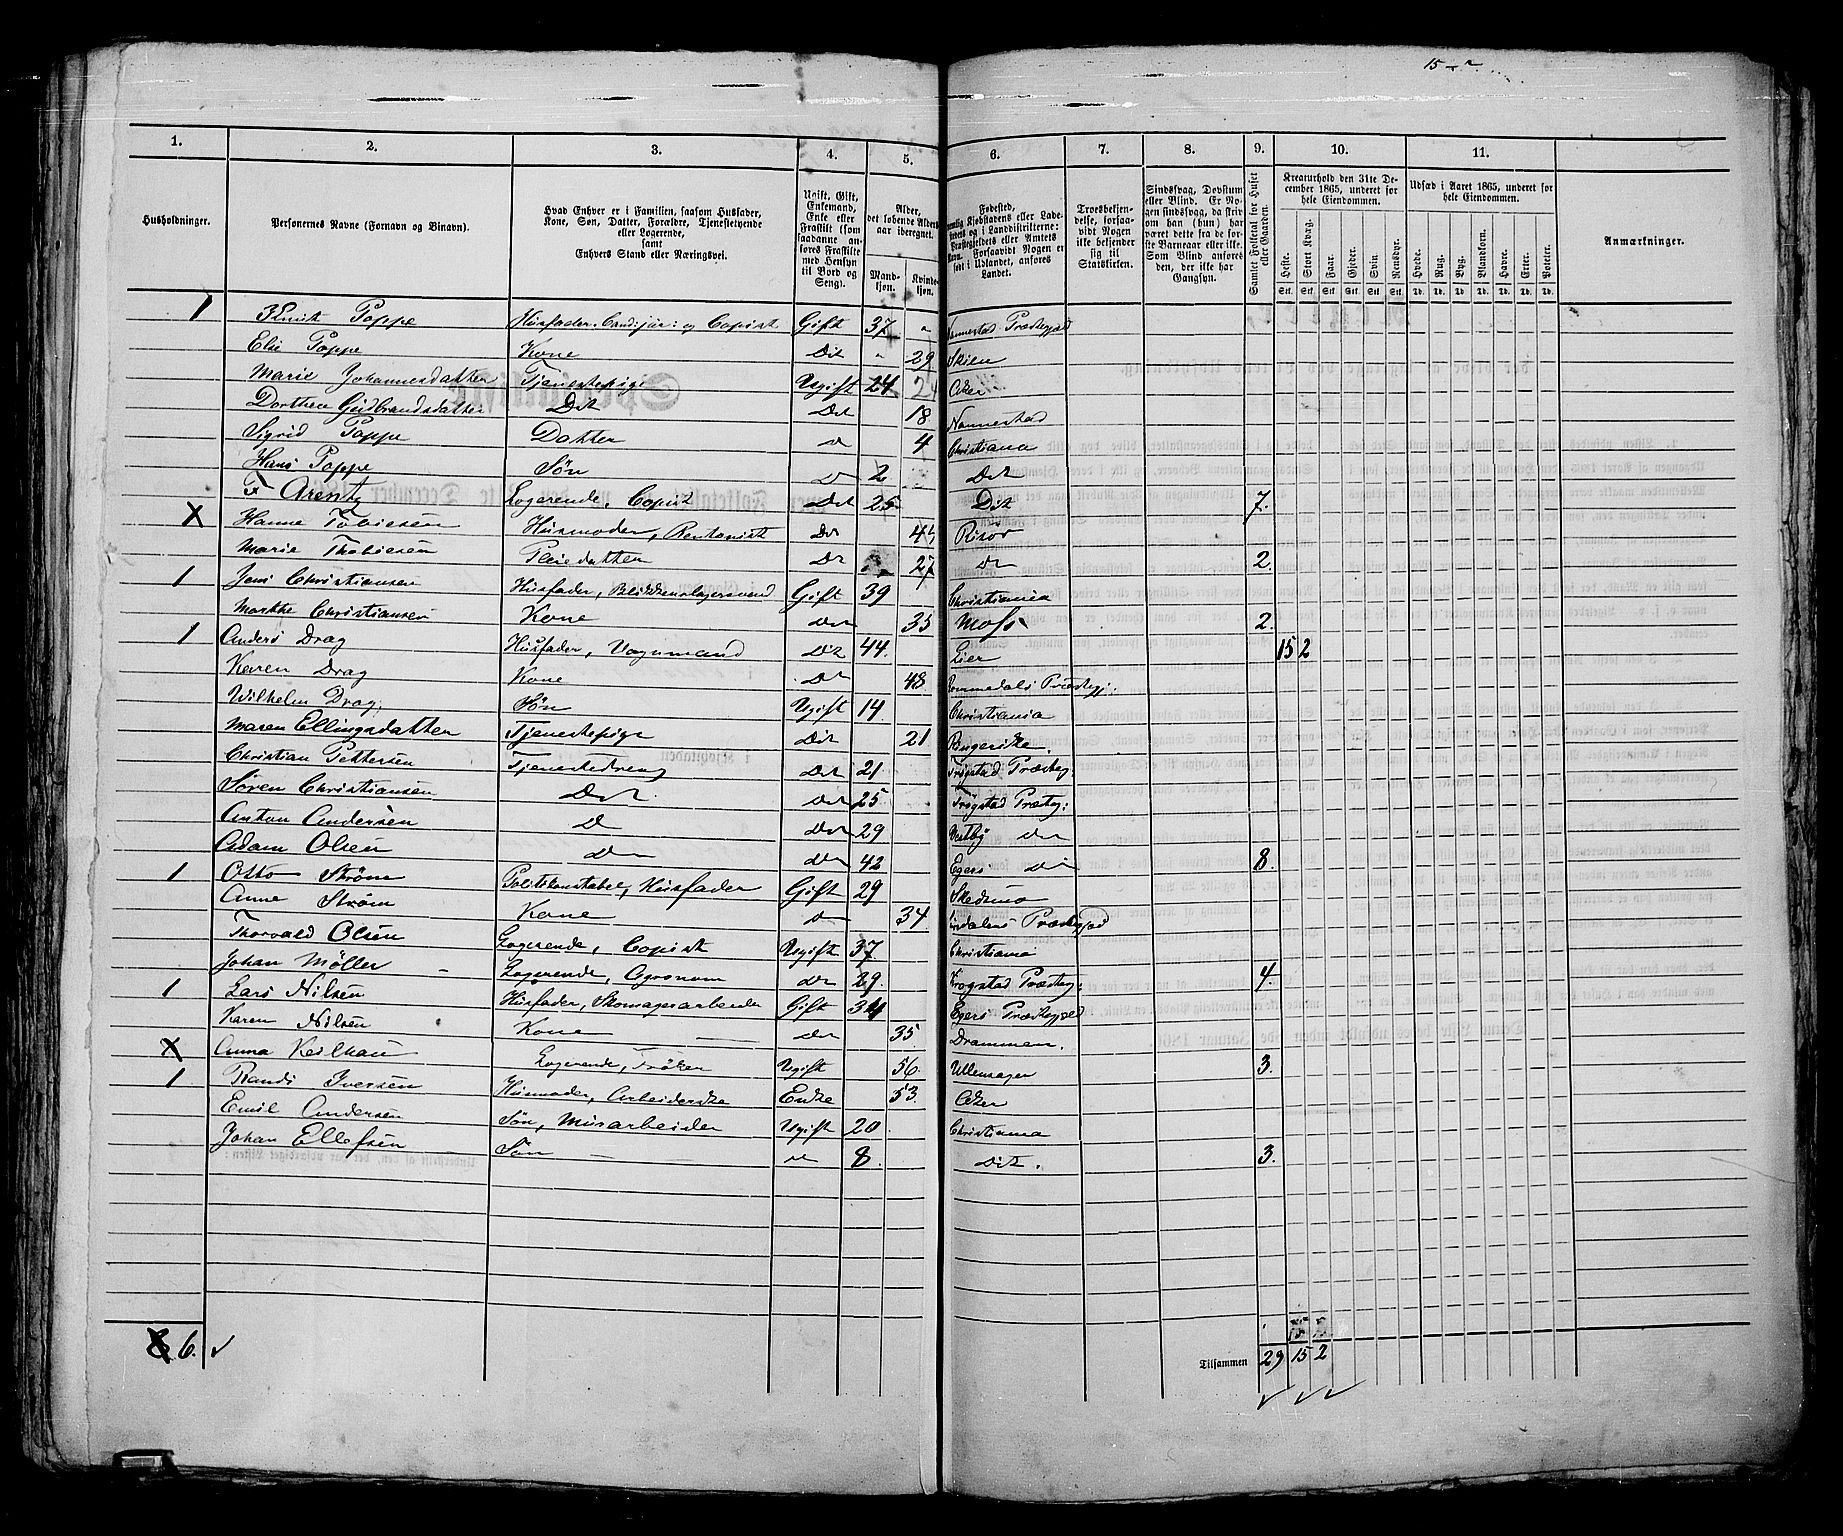 15
1. 2. 3. 4. 5. 6. 7. 8. 9. 10. 11.
Husholdninger.
Personernes Navne (Fornavn og Binavn).
Hvad Enhver er i Familien, saasom Husfader,
Kone, Søn, Datter, Forældre, Tjenestetyende
eller Logerende,
samt
Enhvers Stand eller Næringsvei.
Ugift, Gift,
Enkemand,
Enke eller
Fraskilt (som
saadanne anføres
Fraskilte
med Hensyn
til Bord og
Seng).
Alder,
det løbende Aldersaar
iberegnet.
Mandkjøn.
Kvindekjøn.
Fødested,
nemlig Kjøbstadens eller Ladestedets
og i Landdistrikterne:
Præstegjeldets eller Amtets
Navn. Forsaavidt Nogen er
født i Udlandet, anføres
Landet.
Troesbekjendelse,
forsaavidt
Nogen
ikke bekjender
sig til
Statskirken.
Sindssvag, Døvstum
eller Blind. Er Nogen
sindssvag, da skriv
om han (hun) har
været dette fra de første
Barneaar eller ikke.
Som Blind anføres
den, der ikke har
Gangsyn.
Samlet Folketal for Huset
eller Gaarden.
Kreaturhold den 31te December
1865, underet for
hele Eiendommen.
Heste. Stort Kvæg. Faar. Gjeder. Svin. Rensdyr.
Stk. Stk. Stk. Stk. Stk. Stk.
Udsæd i Aaret 1865, underet for
hele Eiendommen.
Hvede. Rug. Byg. Blandkorn. Havre. Erter. Poteter.
Td. Td. Td. Td. Td. Td. Td.
Anmærkninger.
1 Poppe Husfader, Cand: jur: og Copist Gift 37 " Nannestad Præstegjeld
Elie Poppe Kone Dit " 29 Skien
Marie Johannesdatter Tjenestepige Ugift 24 24 Aker
Dorthea Gudbrandsdatter Dit Det 18 Nannestad
Sigrid Poppe Datter D 4 Christiana
Hans Poppe Søn D 2 Det
F Arentz Logerende, Copist Det 25 Dit 7.
X Hanne Tobiesen Husmoder, Rentenist Do 45 Risør
Marie Thobiesen Pleiedatter Do 27 Do 2.
1 Jens Christiansen Husfader, Blikkenslagersvend Gift 39 Christiania
Marthe Christiansen Kone Do 35 Moss 2.
1 Anders Drag Husfader, Vognmand Dit 44. Lier 15 2
Karen Drag Kone Do 48. Rommedals Præstegj:
Wilhelm Drag Søn Ugift 14. Christiania
Maren Ellingsdatter Tjenestepige Dit 21 Ringerike.
Christian Pettersen Tjenestedreng Det 21. Trøgstad Præsteg:
Søren Christiansen Det Det 25 Trøgstad Præsteg:
Anton Andersen D Do 29 Vestby Do
Adam Olsen Do Do 42 Egers Do 8.
1 Otto Strøm Politikonstabel, Husfader Gift 29 Skedsmo
Anne Strøm Kone D 34 Præstegjeld
Thorvald Olsen Logerende, Copist Ugift 37 Christiania
Johan Møller Logerende, Agronom Do 29. Krogstad Præsteg: 4.
1 Lars Nilsen Husfader, Skomagerarbeider Gift 34 Egers Præstegjeld
Karen Nilsen Kone Do 35 Drammen.
X Anna Keilhau Logerende, Frøken Ugift 56. Ullensager 3.
1 Randi Iversen Husmoder, Arbeiderske Enke 53. Aker
Emil Andersen Søn, Murarbeider Ugift 20 Christiania
Johan Ellefsen Søn D 8. Dit. 3.
8. 6.
Tilsammen 29 15 2